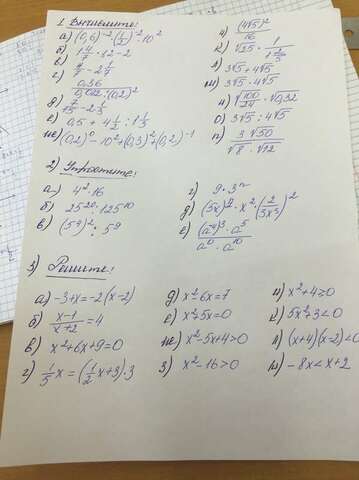 1. Вычислите:
а) (0,6)⁻² · (1/2)⁻² · 10²
б) 1 4/7 · 1,2 - 2
в) 4/7 - 2 1/7
г) 0,56 / 0,022 · (0,2)²
д) 7/15 - 2 1/3
е) 0,5 + 4 1/2 : 1 1/3
ж) (0,2)⁰ - 10² + (0,3)² + (0,2)⁻¹
и) (4√5)² / 16
к) √25 · 1 /
л) 3√5 + 4√5
м) 3√5 · 4√5
о) 3√5 : 4√5
п) 3√50 / √8 · √12
2) Упростите:
а) 4² · 16
б) 25²⁰ : 125¹⁰
в) (5⁹)² : 5⁹
г) 9 · 3ⁿ
е) (a⁴)³ · a⁵ / a⁰ · a¹⁰
3) Решите:
а) -3+x = -2(x-2)
б) x-1 / x+2 = 4
в) x²+6x+9=0
г) 1/5 x = (1/2 x+3) · 3
д) x²-6x=7
е) x²-5x=0
ж) x²-5x+4>0
з) x²-16>0
и) x²+4≥0
к) 5x²+3<0
л) (x+4)(x-2)<0
м) -8x<x+2